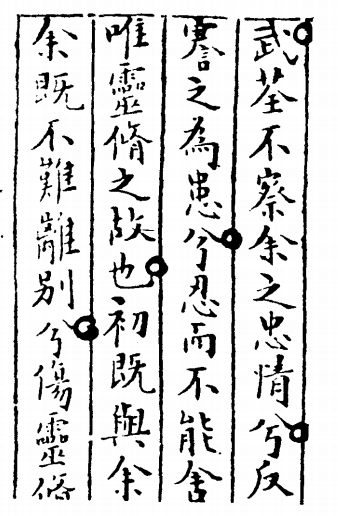 武荃不察余之忠情兮反
謇之為患兮忍而不能舍
唯靈脩之故也初既與余
余既不難離別兮傷靈脩